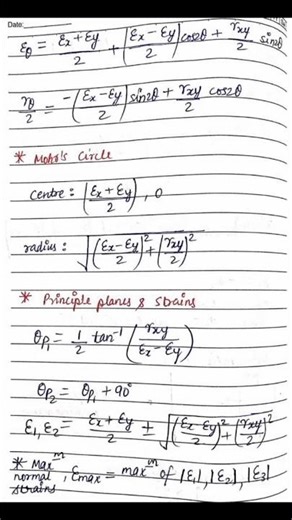 Date:
εθ = (εx + εy)/2 + ((εx − εy)/2) cos2θ + γxy/2 sin2θ
γθ/2 = −((εx − εy)/2) sin2θ + γxy/2 cos2θ
* Mohr's Circle
centre: ((εx + εy)/2), 0
radius: √(((εx − εy)/2)² + (γxy/2)²)
* Principle planes & Strains
θp₁ = 1/2 tan⁻¹ (γxy/(εx − εy))
θp₂ = θp₁ + 90°
ε1, ε2 = (εx + εy)/2 ± √(((εx − εy)/2)² + (γxy/2)²)
* Maxᵐ
normal, εmax = maxᵐ of |ε1|, |ε2|, |ε3|
strains